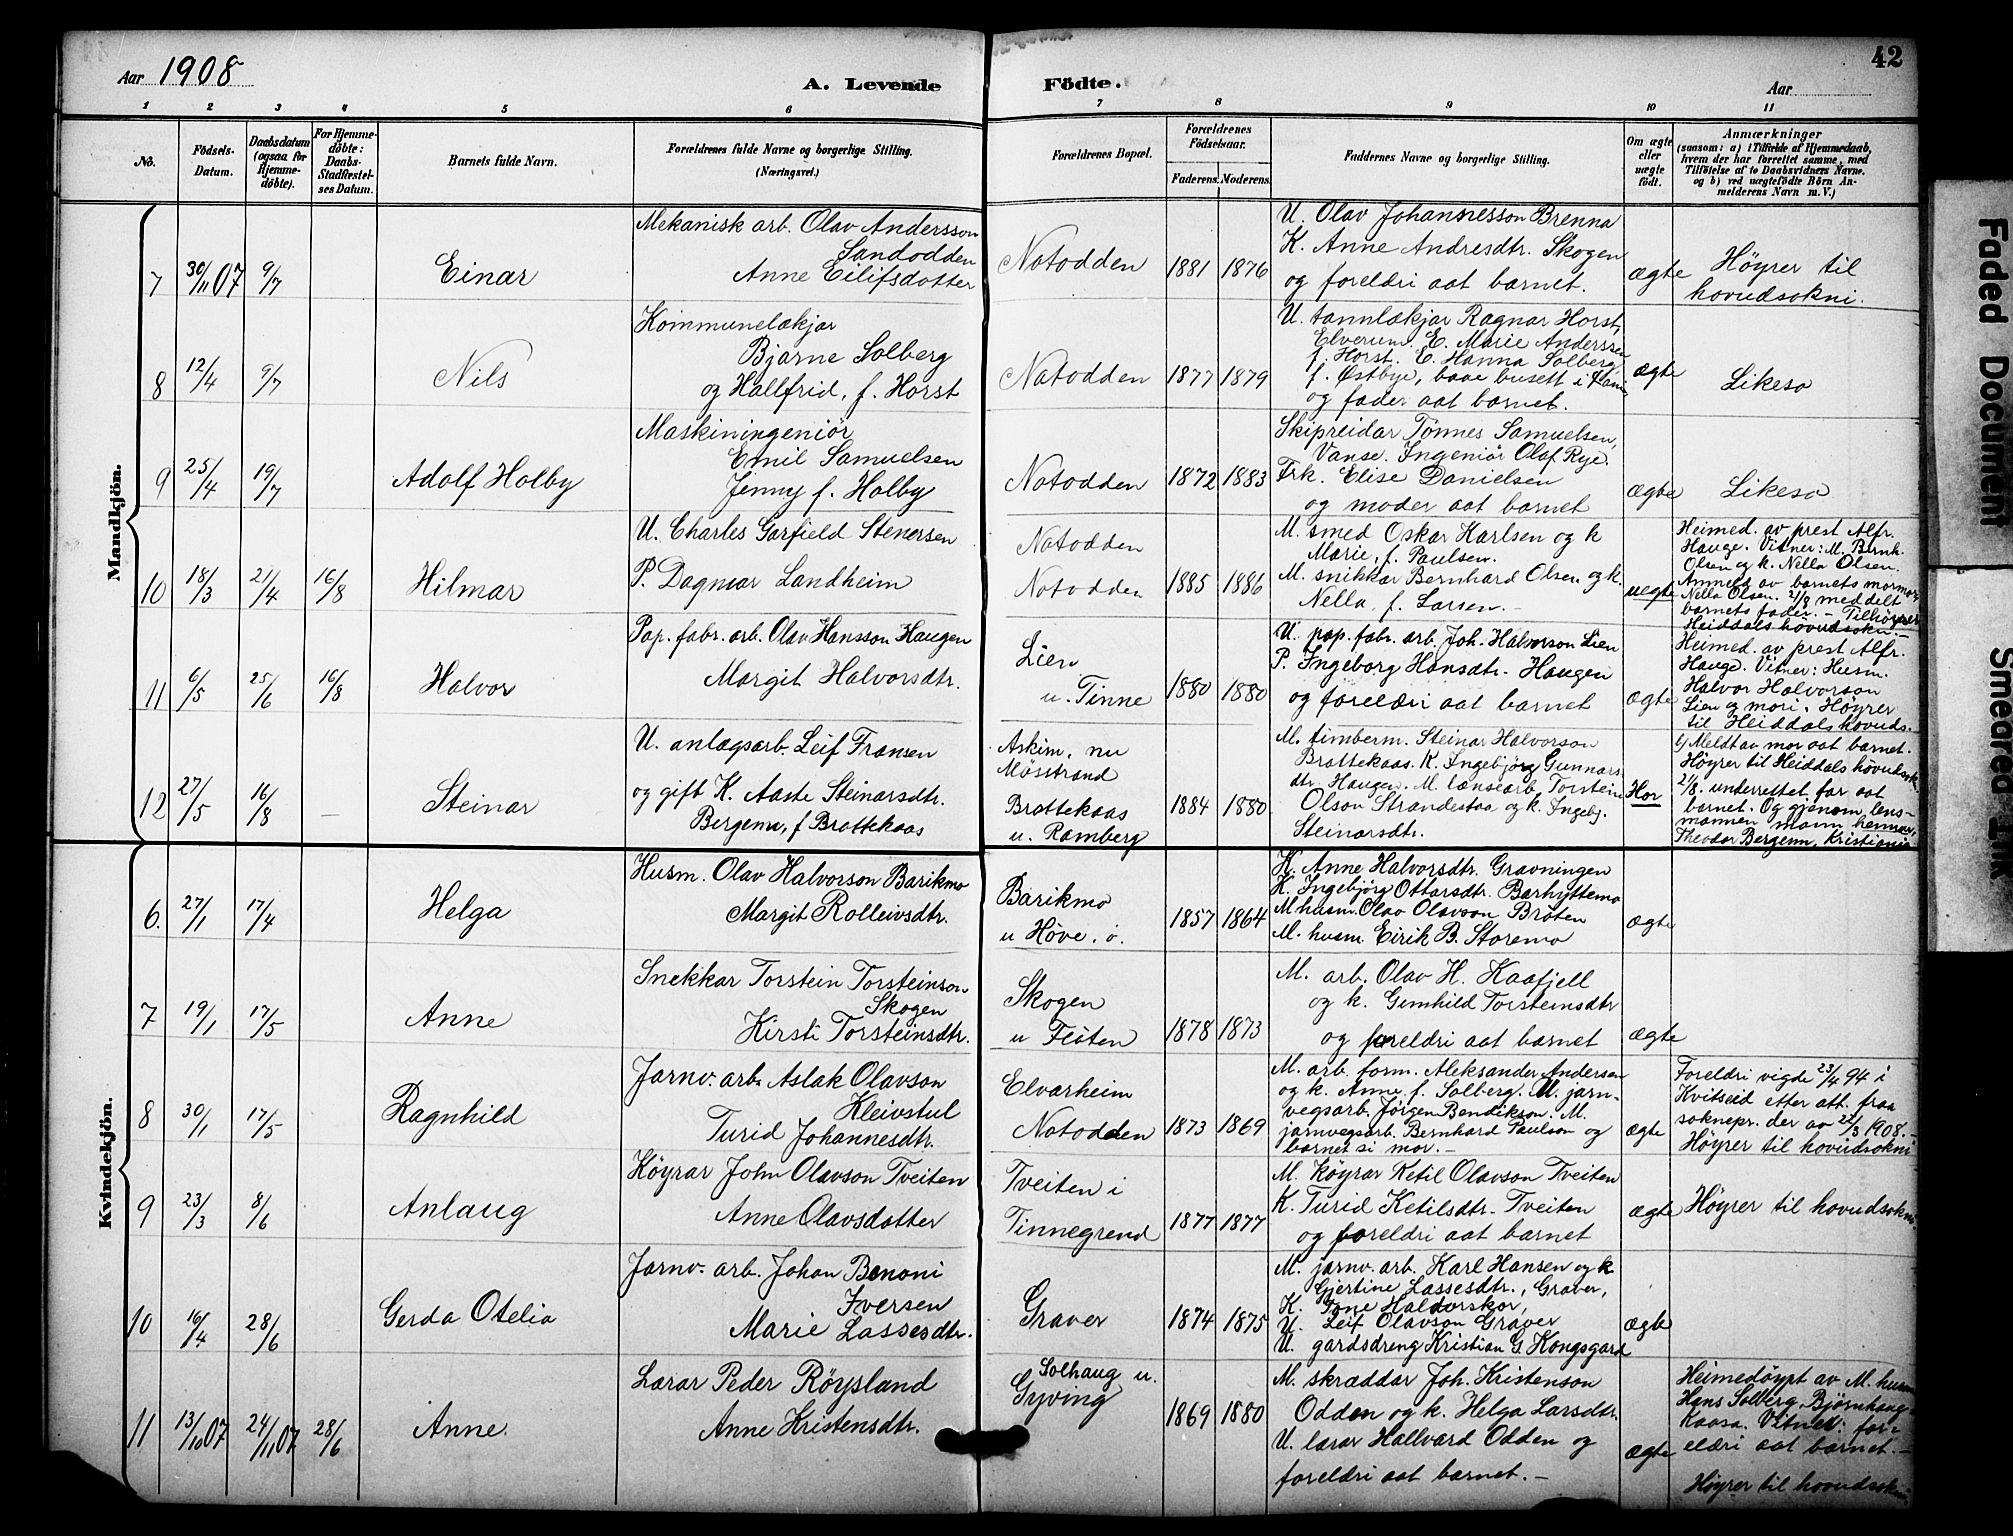 42
Aar 1908
A. Levende
Födte.
Aar
1 2 3 4 5 6 7 8 9 10 11
No.
Födsels-Datum.
Daabsdatum (ogsaa for Hjemme-döbte).
For Hjemme-döbte: Daabs-Stadfæstel-ses Datum.
Barnets fulde Navn.
Forældrenes fulde Navne og borgerlige Stilling. (Næringsvei.)
Forældrenes Bopæl.
Forældrenes Födselsaar.
Faderens. Moderens.
Faddernes Navne og borgerlige Stilling.
Om ægte eller uægte födt.
Anmærkninger
(saasom: a) i Tilfælde af Hjemmedaab,
hvem der har forrettet samme, med
Tilföielse af to Daabsvidners Navne.
og b) ved uægtefödte Börn An-
melderens Navn m. V.)
Mandkjön.
7 30/11 07 9/7 Einar
Mekanisk arb. Olav Andersson
Sandodden
Anne Eilifsdotter
Notodden 1881 1876
U. Olav Johannesson Brenna
K. Anne Andresdtr. Skogen
og foreldri aat barnet.
ægte
Høyrer til
hovudsokni.
8 12/4 9/7 Nils
Kommunelækjar
Bjarne Solberg
og Hallfrid, f. Horst
Notodden 1877 1879
U. tannlækjar Ragnar Horst,
Elverum. E. Marie Anderssen
f. Horst. E. Hanna Solberg,
f. Østbye, baae busett i
og fader aat barnet.
ægte
Likeso
9 25/4 19/7 Adolf Holby
Maskiningeniör
Emil Samuelsen
Jenny f. Holby
Notodden 1872 1883
Skipreidar Tönnes Samuelsen,
Vanse. Ingeniör Olaf Rye.
Frk. Elise Danielsen
og moder aat barnet
ægte
Likeso
10 18/3 21/4 16/8 Hilmar
U. Charles Garfield Stenersen
P. Dagmar Landheim
Notodden
Notodden 1885 1886
M. smed Oskar Karlsen og k
Marie, f. Paulsen.
M. snikkar Bernhard Olsen og k.
Nella, f. Larsen.
uegte
Heimed. av prest Alfr.
Hauge. Vitner: M. Bernh.
Olsen og k. Nella Olsen.
Anmeld av barnets mormor,
Nella Olsen. 2/8 meddelt
barnets fader. - Tilhøyrer
Heiddals hovudsokn. -
11 6/5 25/6 16/8 Halvor
Pap. fabr. arb. Olav Hansson Haugen
Margit Halvorsdtr.
Lien
u. Tinne 1880 1880
U. pap. fabr. arb. Joh. Halvorson Lien
P. Ingeborg Hansdtr. Haugen
og foreldri aat barnet
ægte
Heimed. av prest Alfr.
Hauge. Vitner: Husm.
Halvor Halvorson
Lien og mori. Höyrer
til Heiddals hovuds.
12 27/5 16/8 — Steinar
U. anlægsarb. Leif Fransen
og gift K. Aaste Steinarsdtr.
Bergema, f Brattekaas
Askim, nu
Mösstrand
Brattekaas
u. Ramberg 1884 1880
M. timberm. Steinar Halvorson
Brattekaas. K. Ingebjørg Gunnars
dtr. Haugen. M. lænsearb. Torstein
Olson Strandestaa og k. Ingebj.
Steinarsdtr.
Hor
b) Meldt av mor aat barnet.
Høyrer til Heiddals hovudsokn
2/8. underrettet far aat
barnet. Og gjenom lens-
mannen mann hennar,
Theodor Bergem, Kristiania
Kvindekjön.
6. 27/1 17/4 Helga
Husm. Olav Halvorson Barikmo
Margit Rolleivsdtr.
Barikmo
u Höve. ö. 1857 1864
K. Anne Halvorsdtr. Gravningen
K. Ingebjörg Ottarsdtr. Barhyttemo
M husm. Olav Olavson Bröten
M. husm. Eirik B. Storemo
ægte
7 19/1 17/5 Anne
Snekkar Torstein Torsteinson
Skogen
Kirsti Torsteinsdtr.
Skogen
u Flöten 1878 1873
M. arb. Olav H. Kaafjell
og k. Gunhild Torsteinsdtr
og foreldri aat barnet
ægte
8 30/1 17/5 Ragnhild
Jarnv. arb. Aslak Olavson
Kleivstul
Turid Johannesdtr.
Elvarheim
Notodden 1873 1869
M. arb. form. Aleksander Andersen
og k. Anne f. Solberg. U. jarn-
vegsarb. Jörgen Bendikson. M.
jarnvegsarb. Bernhard Paulson og
barnet si mor. -
ægte
Foreldri vigde 23/4 94 i
Kvitseid etter att. fraa
soknepr. der av 25/3 1908. -
Höyrer til hovudsokni
9 23/3 8/6 Anlaug
Köyrar John Olavson Tveiten
Anne Olavsdotter
Tveiten i
Tinnegrend 1877 1877
M. köyrar Ketil Olavson Tveiten
K. Turid Ketilsdtr. Tveiten
og foreldri aat barnet
ægte
Höyrer til hovudsokni.
10 16/4 28/6 Gerda Otelia
Jarnv. arb. Johan Benoni
Iversen
Marie Lassesdtr.
Graver 1874 1875
M. jarnv. arb. Karl Hansen og k
Gjertine Lassesdtr., Graver,
K. Tone Haldorskor,
U. Leif Olavson Graver
U. gardsdreng Kristian G Kongsgard
ægte
11 13/10 07 24/11 07 28/6 Anne.
Lærar Peder Röysland
Anne Kristensdtr.
Solhaug u.
Gyving 1869 1880
M. skræddar Joh. Kristenson
Odden og k. Helga Larsdtr.
U. lærar Hallvard Odden og
foreldri aat barnet. -
ægte
Heimedöypt av M. husm
Hans Solberg, Bjørnhaug
Kaasa. Vitner: for-
eldri aat barnet. -
Höyrer til hovudsokni.
Faded Document
Smeared Ink